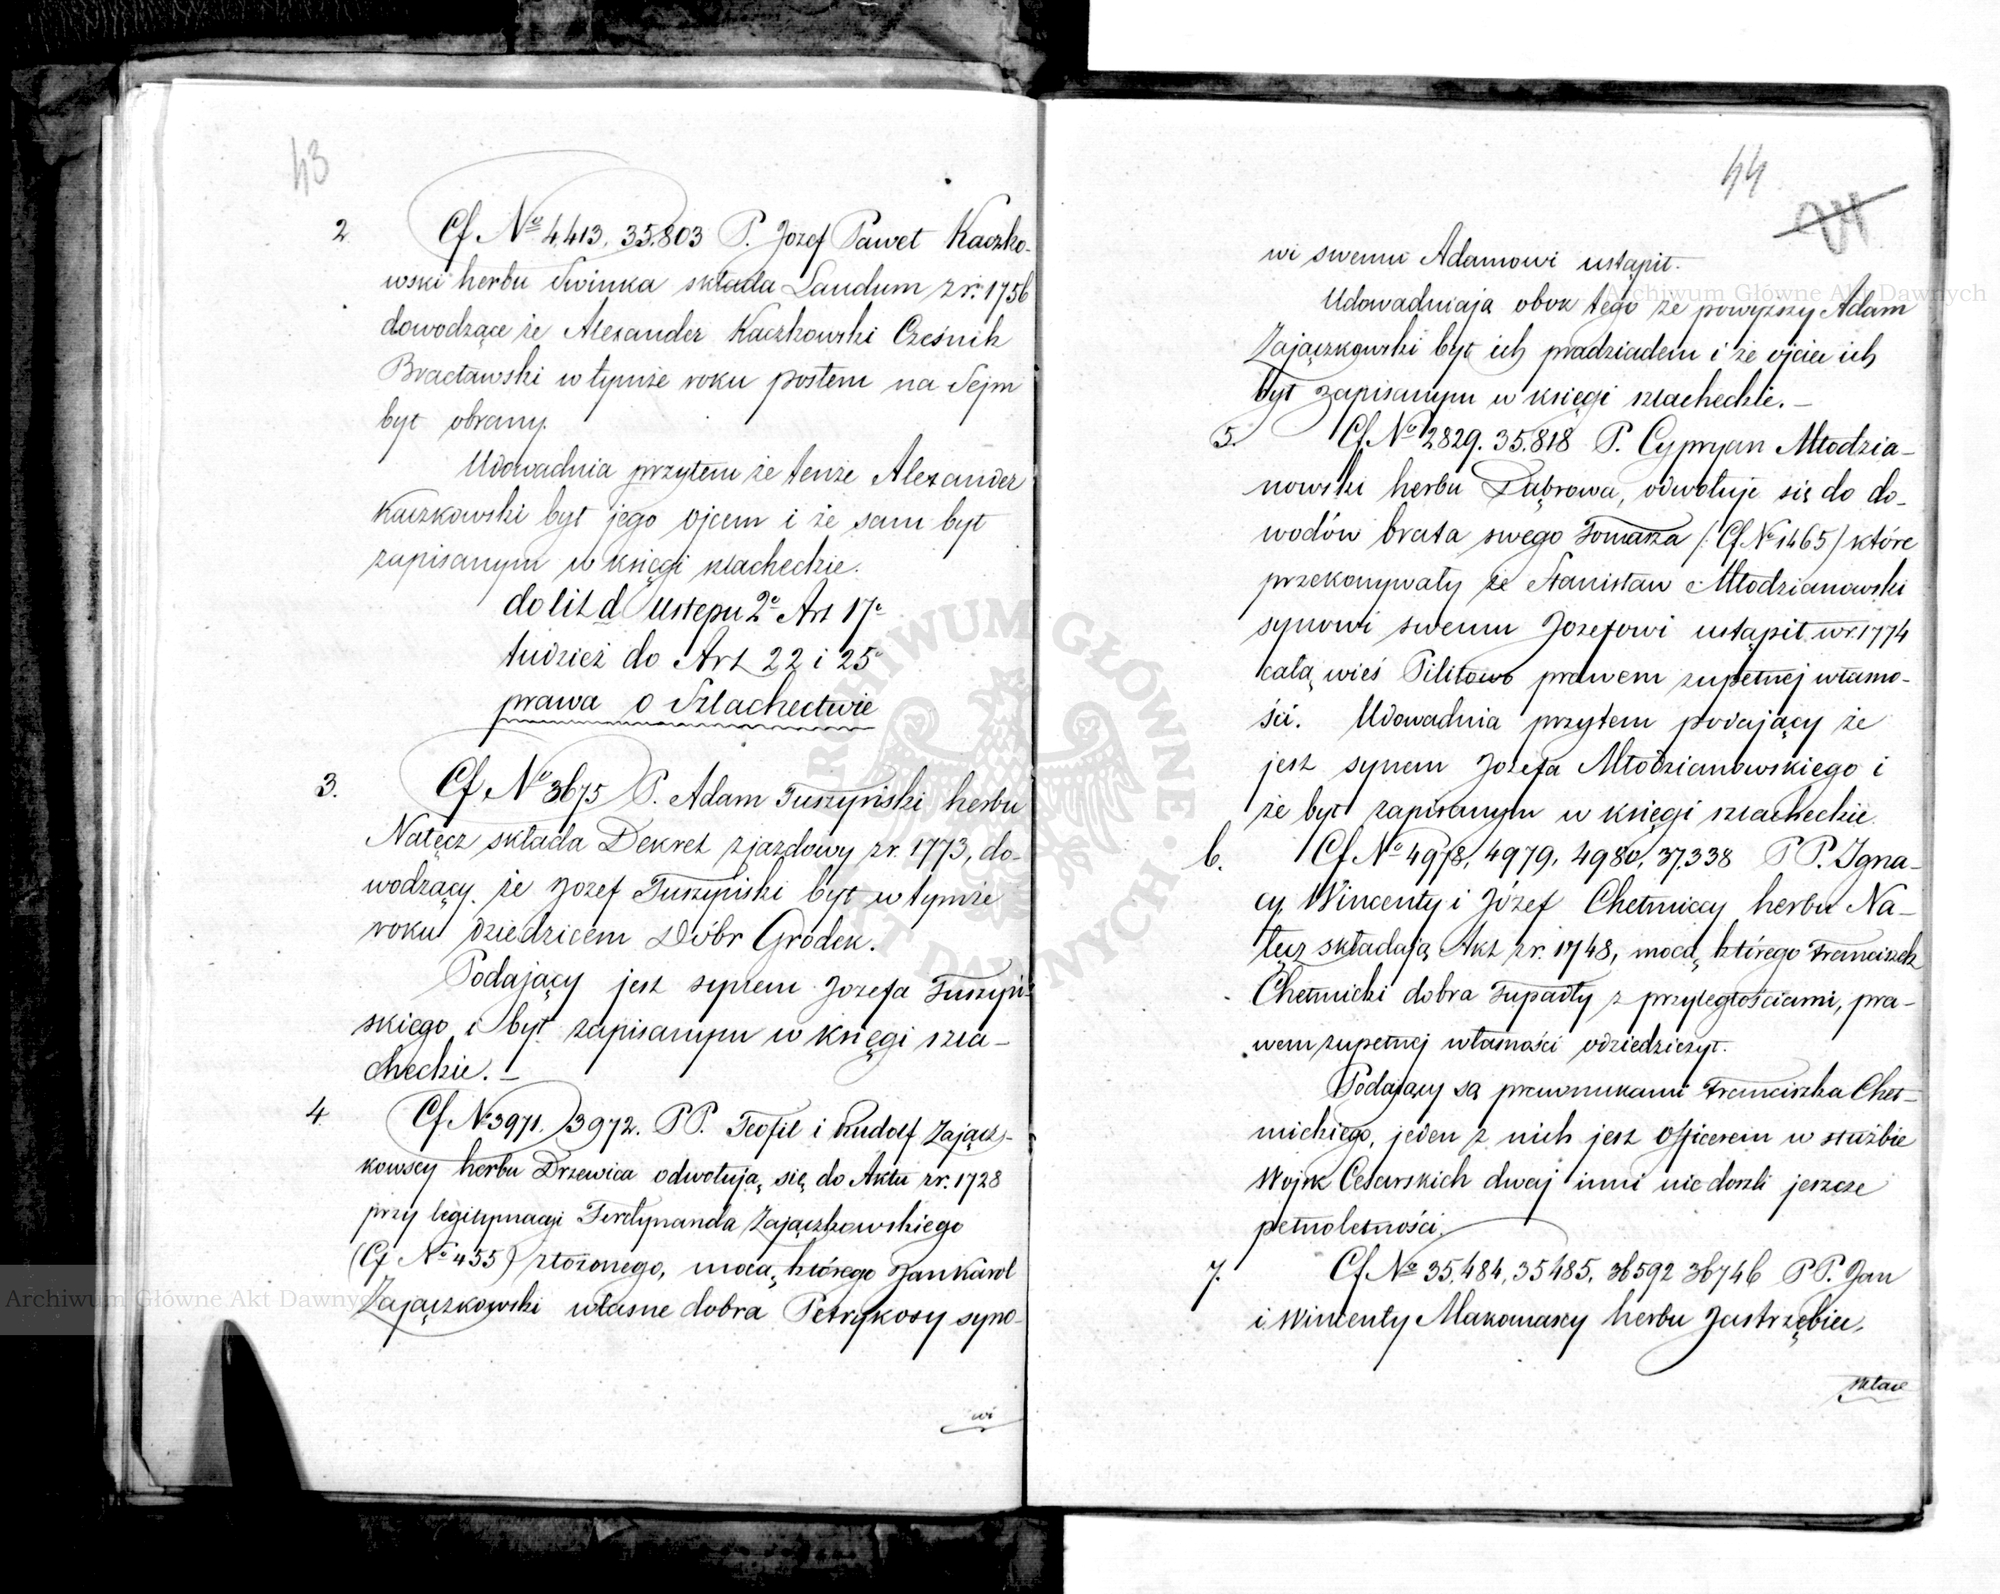 43
2. Cf. No 4413, 35.803 P. Jozef Paweł Kaczko-
wski herbu Swinka składa Laudum z r. 1756
dowodzące że Alexander Kaczkowski Cześnik
Bracławski w tymże roku posłem na Sejm
był obrany.
Udowadnia przytem że tenże Alexander
Kaczkowski był jego ojcem i że sam był
zapisanym w księgi szlacheckie.
do lit d Ustępu 2o Art 17o
tudzież do Art 22 i 25o
prawa o Szlachectwie
3. Cf. No 3675 P. Adam Tuszyński herbu
Nałęcz składa Dekret zjazdowy z r. 1773, do-
wodzący, że Jozef Tuszyński był w tymże
roku dziedzicem Dóbr Grodek.
Podający jest synem Jozefa Tuszyń-
skiego i był zapisanym w księgi szla-
checkie. —
4. Cf. No 3971. 3972. PP. Teofil i Rudolf Zającz-
kowscy herbu Drzewica odwołują się do Aktu z r. 1728
przy legitymacyi Ferdynanda Zajączkowskiego
(Cf No 455) złożonego, mocą którego Jan Karol
Zajączkowski własne dobra Petrykosy syno-
wi
44
wi swemu Adamowi ustąpił.
Udowadniają obok tego że powyższy Adam
Zajączkowski był ich pradziadem i że ojciec ich
był zapisanym w księgi szlacheckie. —
5. Cf. No 2829. 35.818 P. Cypryan Młodzia-
nowski herbu Dąbrowa, odwołuje się do do-
wodów brata swego Tomasza /: Cf No 1465/ które
przekonywały że Stanisław Młodzianowski
synowi swemu Jozefowi ustąpił w r. 1774
całą wieś Pilitowo prawem zupełnej własno-
ści. Udowadnia przytem podający że
jest synem Jozefa Młodzianowskiego i
że był zapisanym w księgi szlacheckie.
6. Cf No 4978, 4979, 4980, 37.338 PP. Igna-
cy, Wincenty i Józef Chełmiccy herbu Na-
łęcz składają Akt z r. 1748, mocą którego Franciszek
Chełmicki dobra Tupadły z przyległościami, pra-
wem zupełnej własności odziedziczył.
Podający są prawnukami Franciszka Cheł-
mickiego, jeden z nich jest officerem w służbie
Wojsk Cesarskich dwaj inni nie doszli jeszcze
pełnoletności.
7. Cf No 35,484, 35485, 36592 36746 PP. Jan
i Wincenty Makomascy herbu Jastrzębiec,
składa
Archiwum Główne Akt Dawnych
Archiwum Główne Akt Dawnych
ARCHIWUM GŁÓWNE AKT DAWNYCH